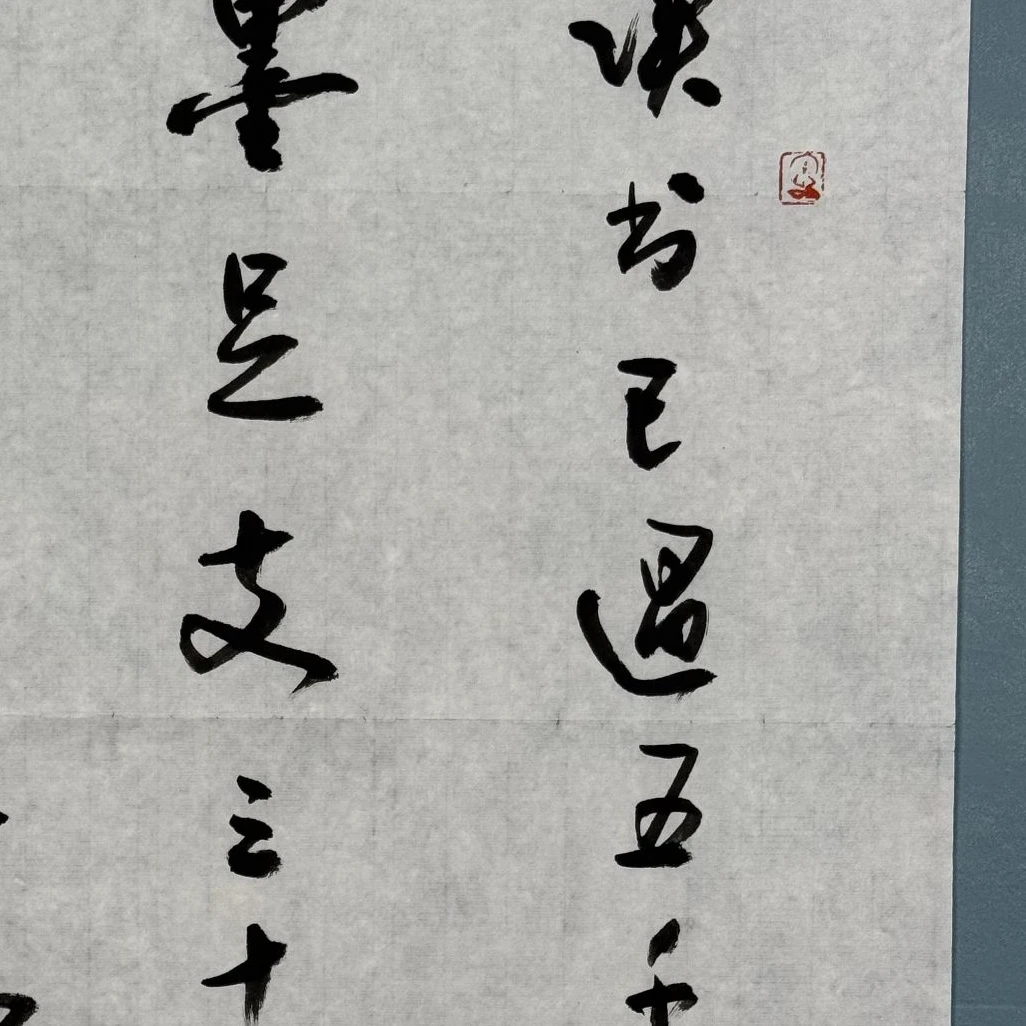 读书已過五千
墨足支三十